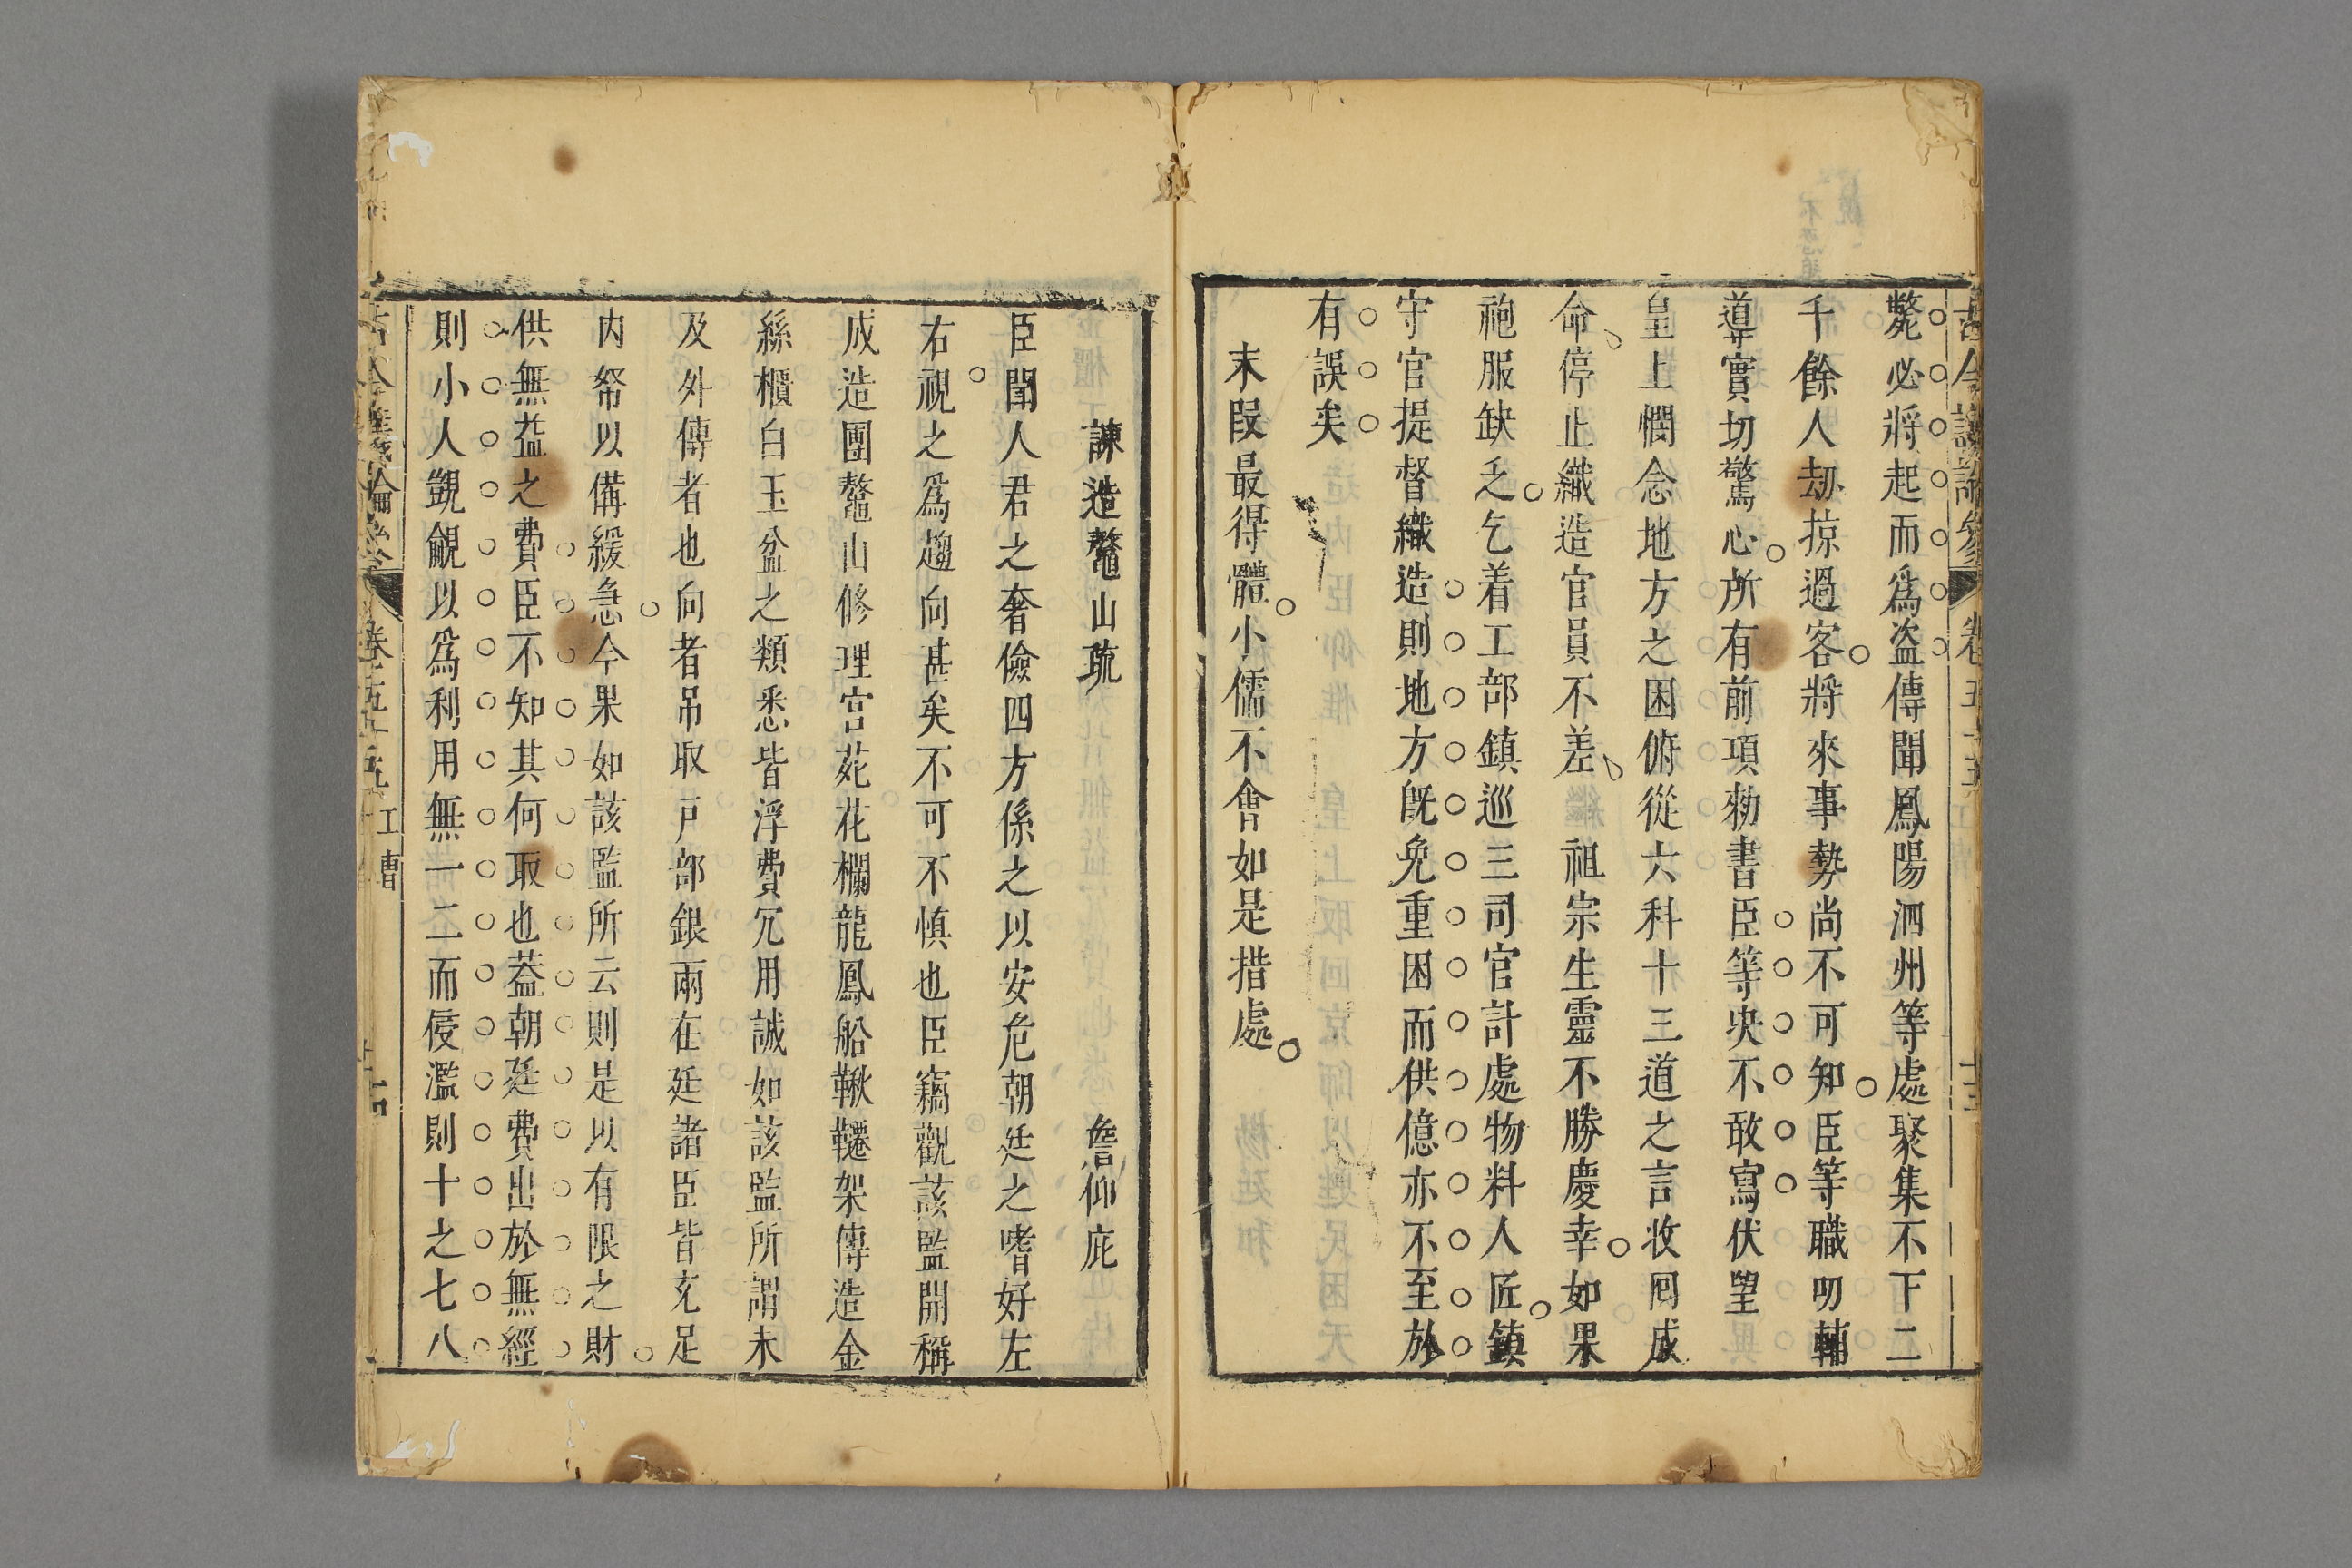 斃必將起而爲盗傳聞鳳陽泗州等處聚集不下二
千餘人刼掠過客將來事勢尚不可知臣等職叨輔
導實切驚心所有前項勑書臣等决不敢寫伏望
皇上憫念地方之困俯從六科十三道之言收囘成
命停止織造官員不差 祖宗生靈不勝慶幸如果
袍服缺乏乞着工部鎮巡三司官計處物料人匠鎮
守官提督織造則地方旣免重困而供億亦不至於
有誤矣
末段最得體小儒不會如是措處
諫造鰲山疏 詹仰庇
臣聞人君之奢儉四方係之以安危朝廷之嗜好左
右視之爲趨向甚矣不可不慎也臣竊觀該監開稱
成造團鰲山修理宫苑花欄龍鳳船鞦韆架傳造金
絲櫃白玉盆之類悉皆浮費冗用誠如該監所謂未
及外傳者也向者吊取戸部銀兩在廷諸臣皆充足
内帑以備緩急今果如該監所云則是以有限之財
供無益之費臣不知其何取也葢朝廷費出於無經
則小人覬覦以爲利用無一二而侵濫則十之七八
工曹